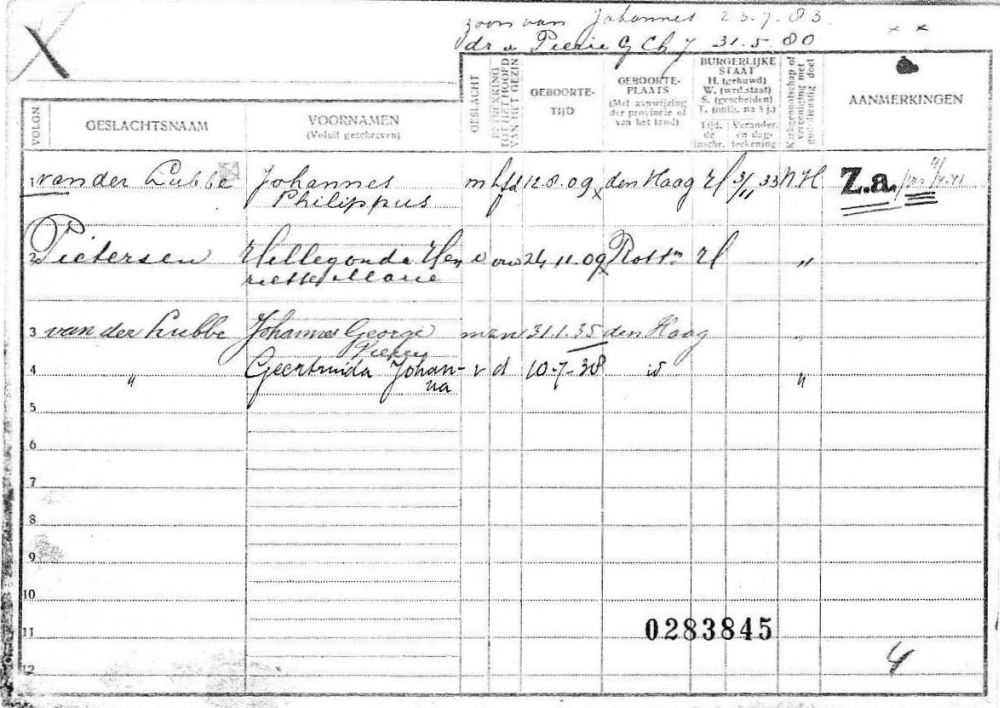 zoon van Johannes 23.7.83.
dr v Pierie G Ch J 31.5.80
VOLGN.
GESLACHTSNAAM
VOORNAMEN
(Voluit geschreven)
GESLACHT
BETREKKING TOT HET HOOFD VAN HET GEZIN
GEBOORTE-
TIJD
GEBOORTE-
PLAATS
(Met aanwijzing
der provincie of
van het land)
BURGERLIJKE
STAAT
H. (gehuwd)
W. (wed.staat)
S. (gescheiden)
T. (ontb. na 5 j.)
Tijd.
de
inschr.
Verander.
en dag-
teekening
Kerkgenootschap of vereeniging met godsdienstig doel
AANMERKINGEN
1 van der Lubbe Johannes m hfd 12.8.09 den Haag H 3/11 33 N.H Z.a.
Philippus
2 Pietersen Hillegonda Hen v vrw 24.11.09 Rottm H "
riette Marie
3 van der Lubbe Johannes George m zn 31.1.35 den Haag "
4 " Geertruida Johan- v d 10-7-38 id "
na
5
6
7
8
9
10
11
12
0283845
4